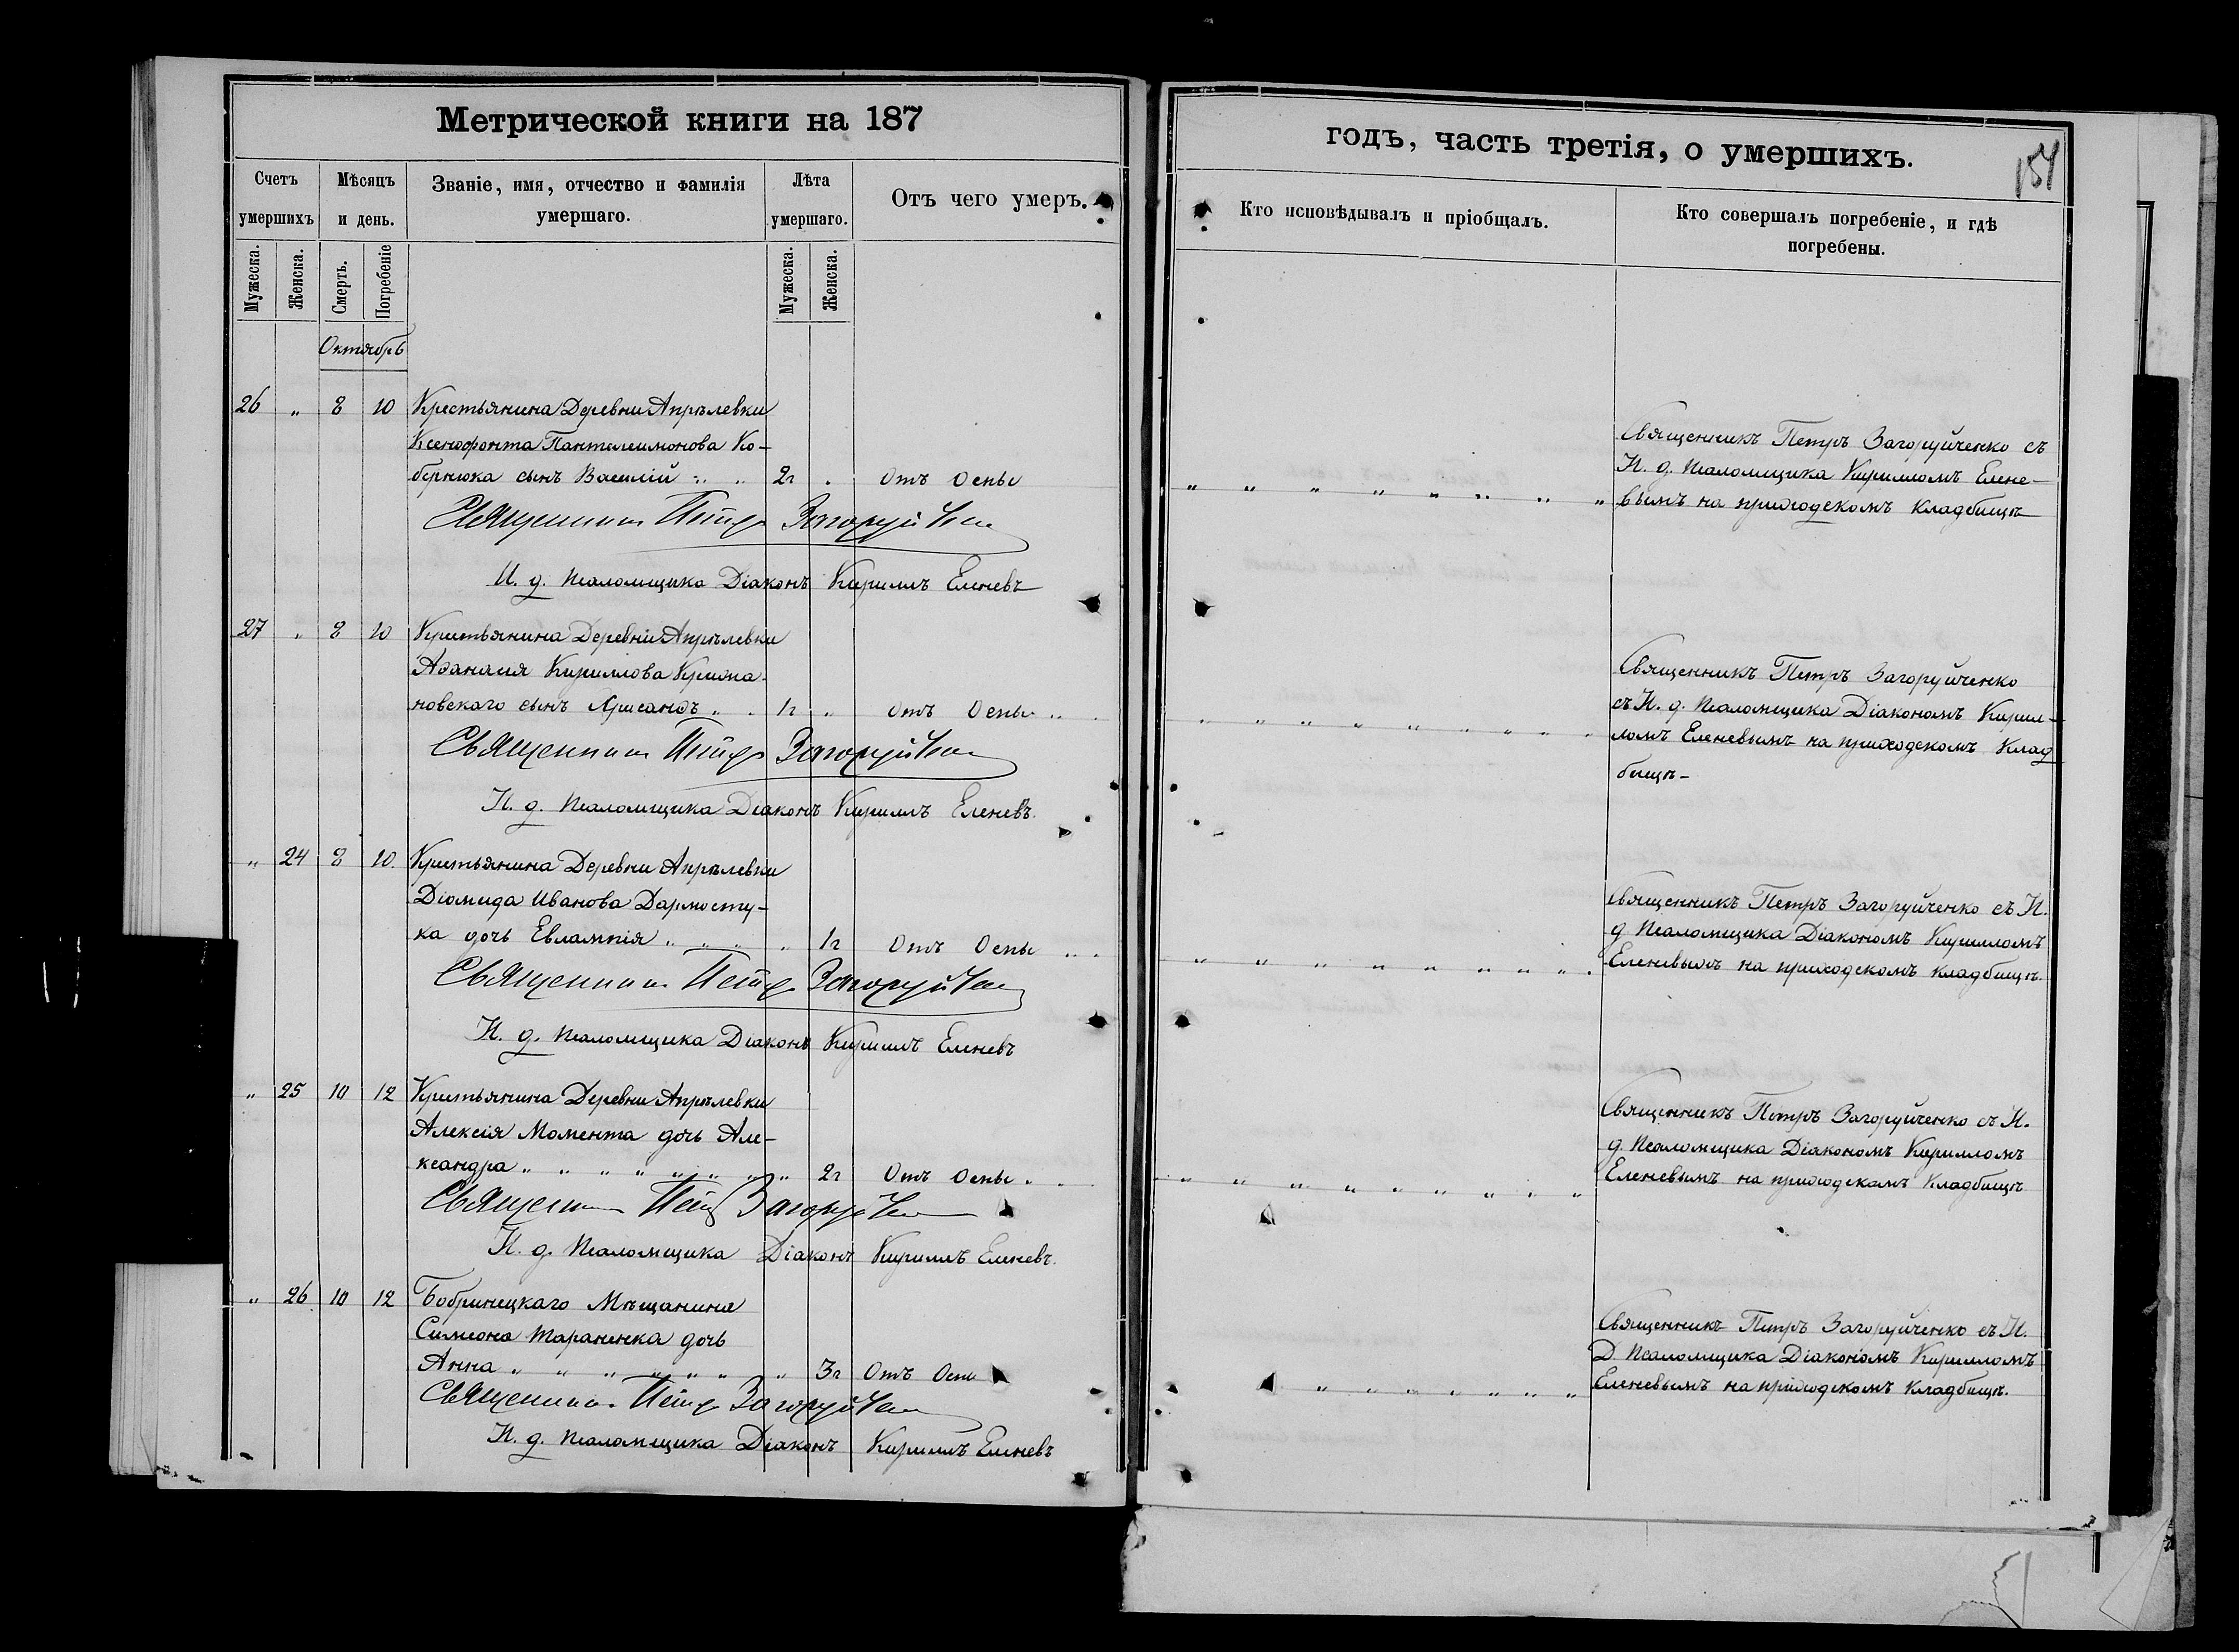 Метрической книги на 187
Счетъ умершихъ
Мѣсяцъ и день.
Званіе, имя, отчество и фамилія умершаго.
Лѣта умершаго.
Отъ чего умеръ.
Мужеска.
Женска.
Смерть.
Погребеніе
Мужеска.
Женска.
Октябрь
26 „ 8 10 Крестьянина Деревни Апрѣлевки
Ксенофонта Пантелеимонова Ко-
бернюка сынъ Василій „ „ 2г „ Отъ Оспы
Священникъ Петръ Загоруйченко
И. д. Псаломщика Діаконъ Кириллъ Еленевъ
27 „ 8 10 Крестьянина Деревни Апрѣлевки
Аѳанасія Кириллова Крижа-
новскаго сынъ Хрисанфъ „ „ 1г „ Отъ Оспы
Священникъ Петръ Загоруйченко
И. д. Псаломщика Діаконъ Кириллъ Еленевъ.
„ 24 8 10 Крестьянина Деревни Апрѣлевки
Діомида Иванова Дармосту-
ка дочь Евлампія „ „ „ „ 1г Отъ Оспы
Священникъ Петръ Загоруйченко
И. д. Псаломщика Діаконъ Кириллъ Еленевъ
„ 25 10 12 Крестьянина Деревни Апрѣлевки
Алексія Момента дочь Але-
ксандра „ „ „ „ „ „ „ „ 2г Отъ Оспы
Священникъ Петръ Загоруйченко
И. д. Псаломщика Діаконъ Кириллъ Еленевъ.
„ 26 10 12 Бобринецкаго Мѣщанина
Симеона Тараненка дочь
Анна „ „ „ „ „ „ „ 3г Отъ Оспы
Священникъ Петръ Загоруйченко
И. д. Псаломщика Діаконъ Кириллъ Еленевъ
годъ, часть третія, о умершихъ.
154
Кто исповѣдывалъ и пріобщалъ.
Кто совершалъ погребеніе, и гдѣ погребены.
Священникъ Петръ Загоруйченко съ
И. д. Псаломщика Кирилломъ Елене-
вымъ на приходскомъ кладбищѣ
Священникъ Петръ Загоруйченко
съ И. д. Псаломщика Діакономъ Кирил-
ломъ Еленевымъ на приходскомъ Клад
бищѣ-
Священникъ Петръ Загоруйченко съ И.
д Псаломщика Діакономъ Кирилломъ
Еленевымъ на приходскомъ кладбищѣ.
Священникъ Петръ Загоруйченко съ И.
д. Псаломщика Діакономъ Кирилломъ
Еленевымъ на приходскомъ Кладбищѣ
Священникъ Петръ Загоруйченко съ И.
Д Псаломщика Діакономъ Кирилломъ
Еленевымъ на приходскомъ Кладбищѣ.